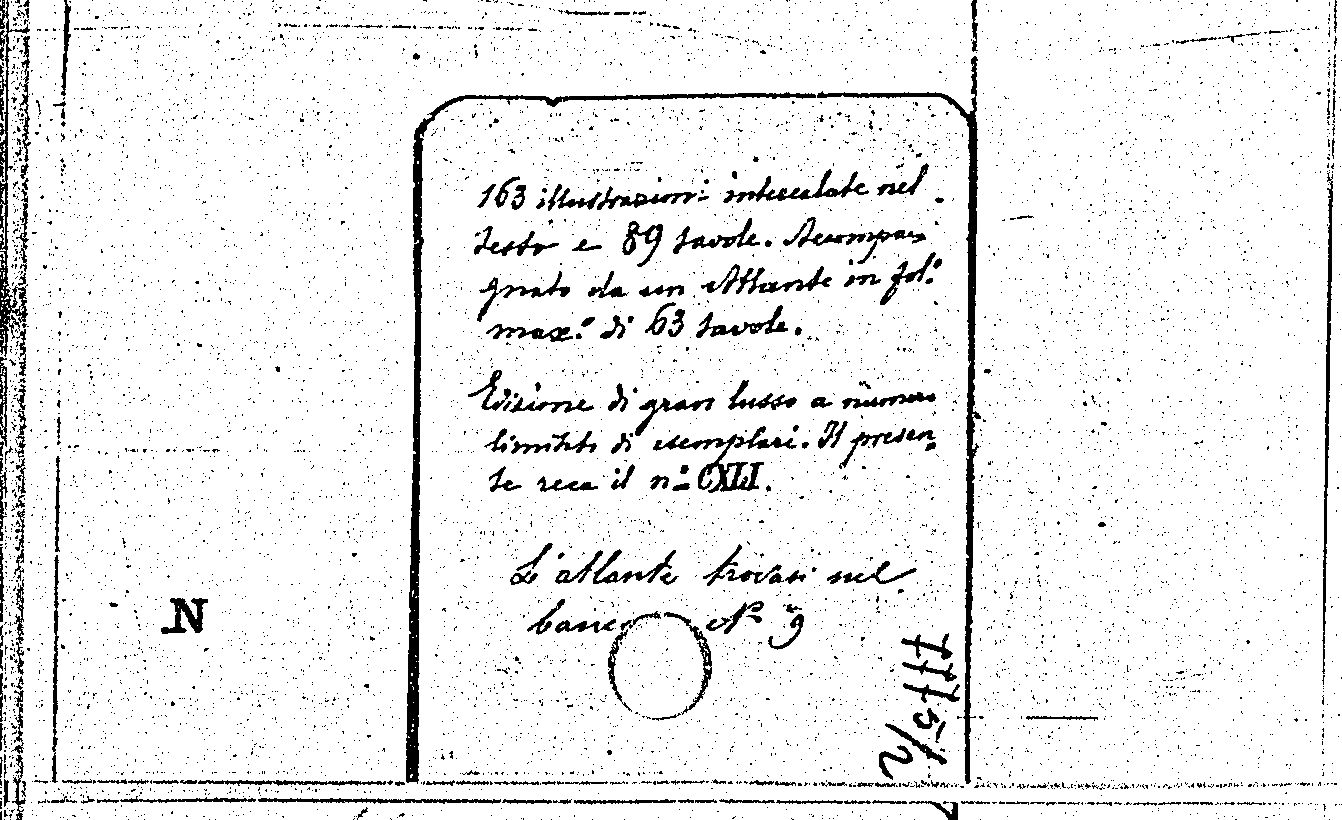 163 illustrazioni intercalate nel
testo e 89 tavole. Accompa=
gnato da un Atlante in fol.º
max.º di 63 tavole.
Edizione di gran lusso a numero
limitato di esemplari. Il presen=
te reca il nº CXLI.
L'atlante trovasi nel
banco Nº 9
N